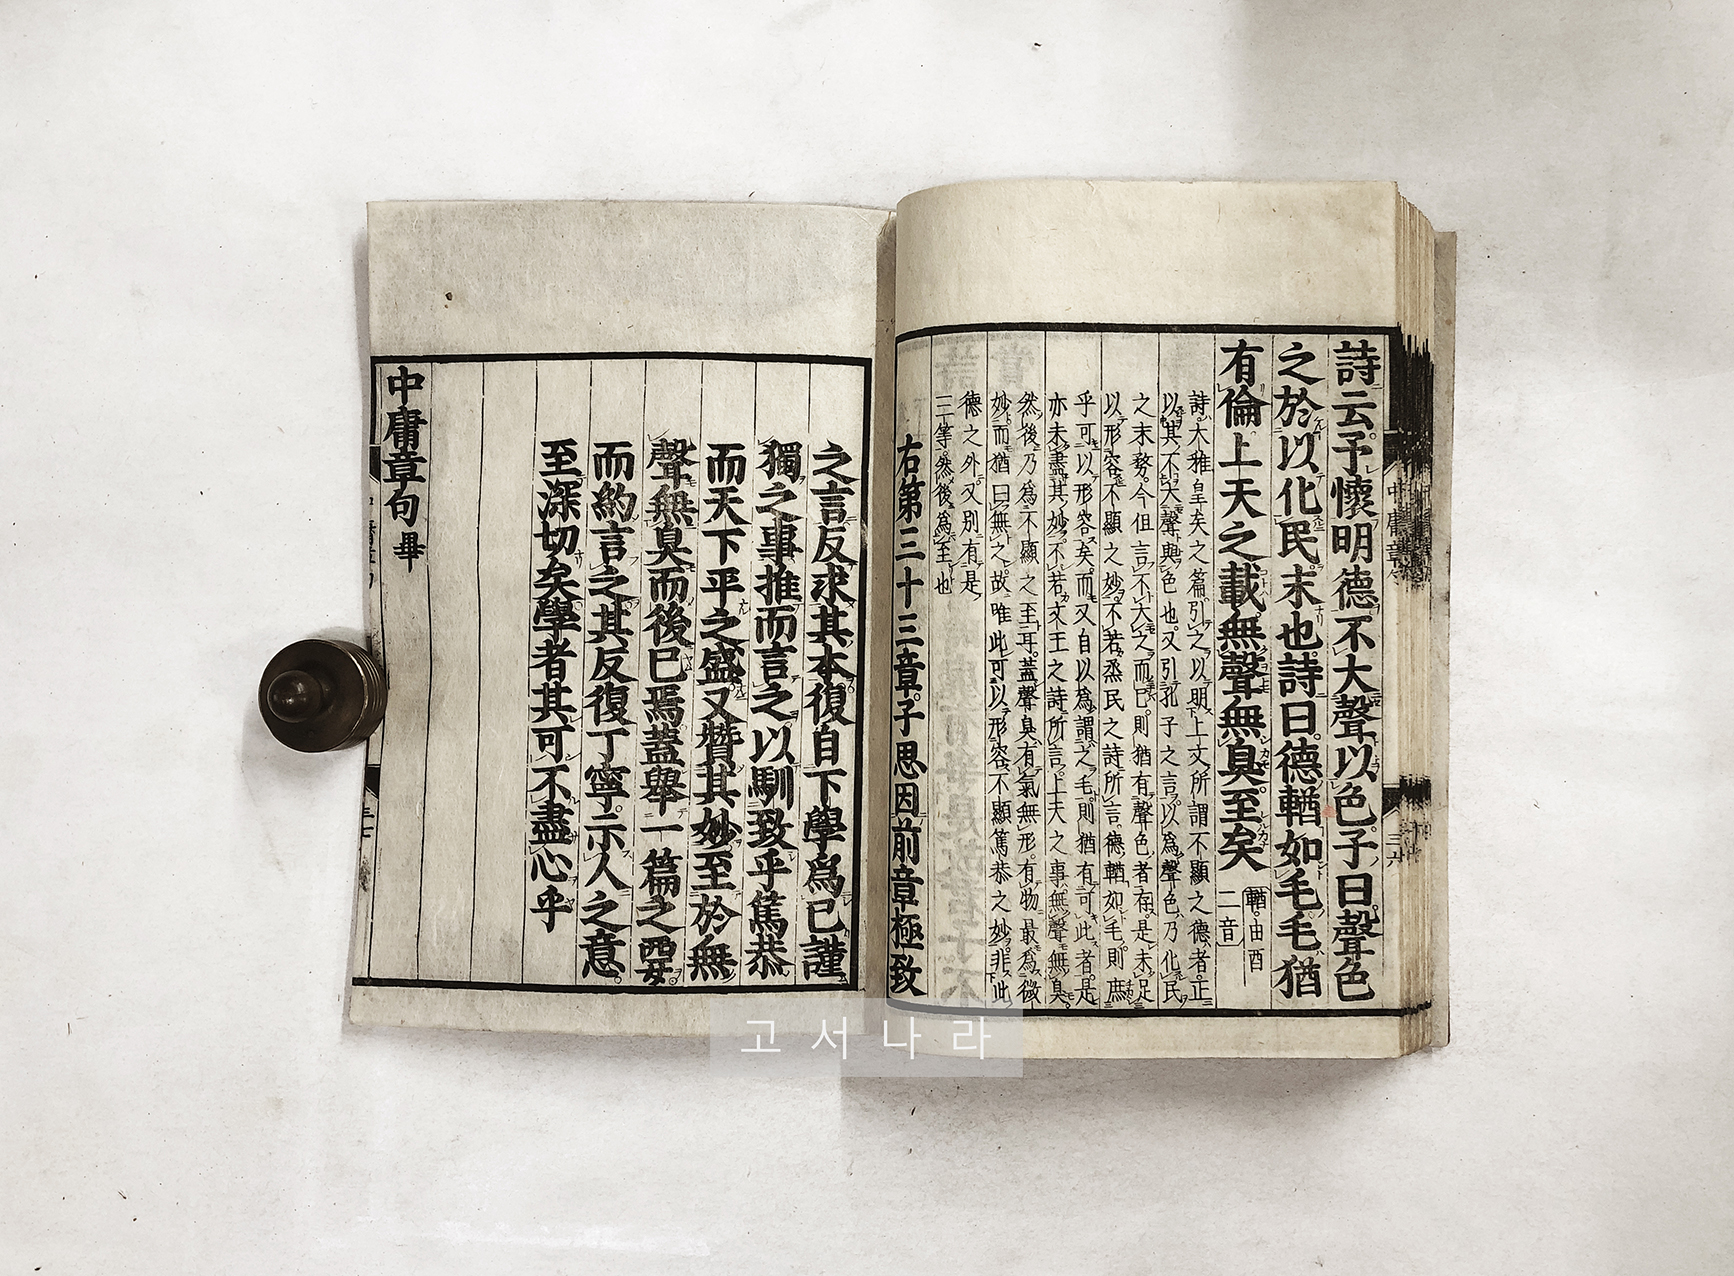 詩云予懷明德不大聲以色子曰聲色
之於以化民末也詩曰德輶如毛毛猶
有倫上天之載無聲無臭至矣
輶由酉
二音
詩大雅皇矣之篇引之以明上文所謂不顯之德者正
以其不大聲與色也又引孔子之言以爲聲色乃化民
之末務今但言不大之而已則猶有聲色者存是未足
以形容不顯之妙不若烝民之詩所言德輶如毛則庶
乎可以形容矣而又自以爲謂之毛則猶有可比者是
亦未盡其妙不若文王之詩所言上天之事無聲無臭
然後乃爲不顯之至耳蓋聲臭有氣無形在物最爲微
妙而猶曰無之故唯此可以形容不顯篤恭之妙非此
德之外又別有是
三等然後爲至也
右第三十三章子思因前章極致
之言反求其本復自下學爲己謹
獨之事推而言之以馴致乎篤恭
而天下平之盛又贊其妙至於無
聲無臭而後已焉蓋舉一篇之要
而約言之其反復丁寧示人之意
至深切矣學者其可不盡心乎
中庸章句畢
고서나라